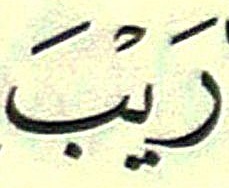 رَيْبَ